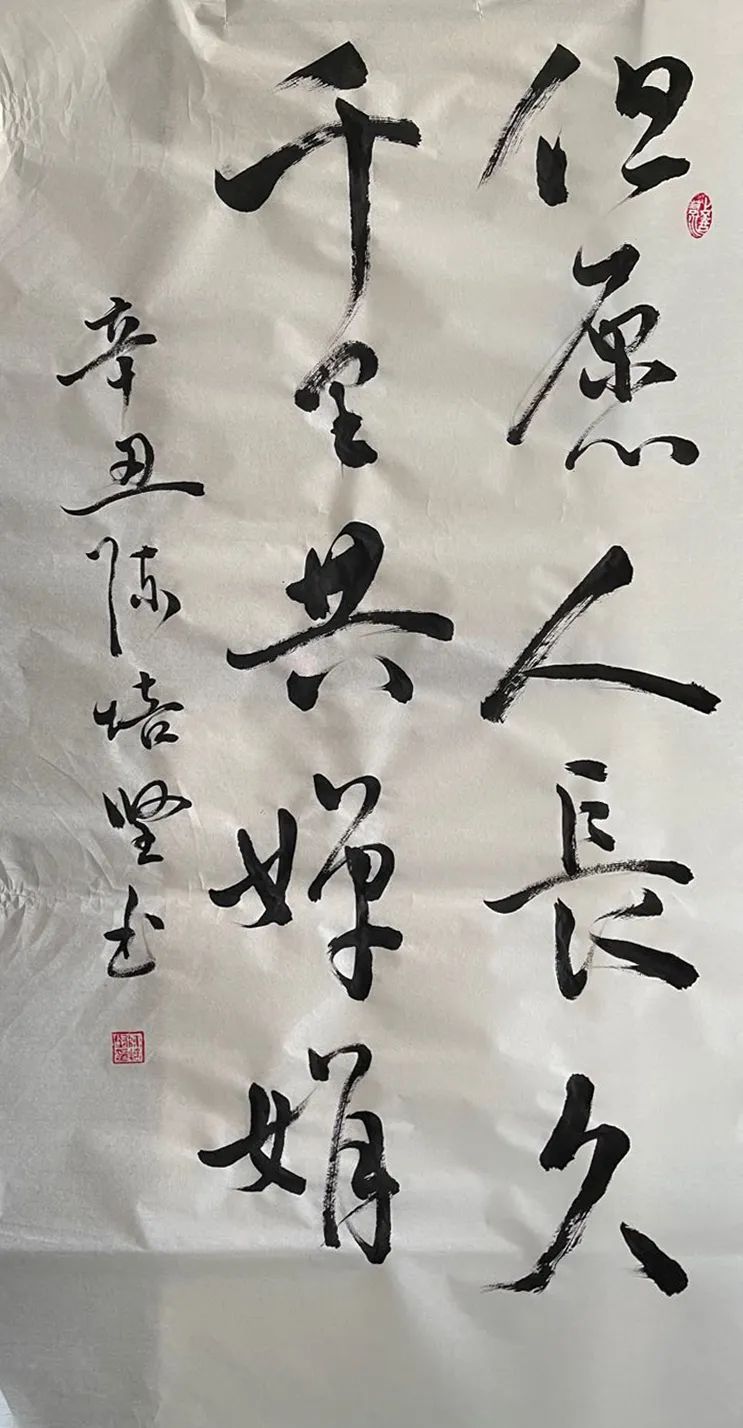 但愿人長久
千里共婵娟
辛丑陈培坚书